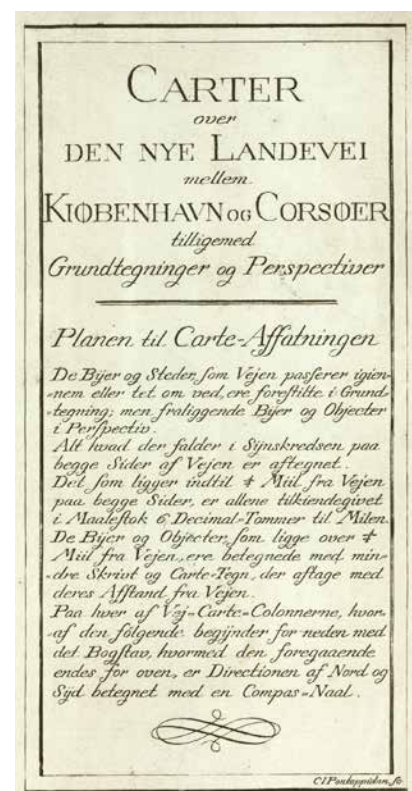 CARTER
over
DEN NYE LANDEVEI
mellem
KIØBENHAVN OG CORSØER
tilligemed
Grundtegninger og Perspectiver
Planen til Carte-Affatningen
De Bÿer og Steder, ſom Vejen paſſerer igien-
-nem eller tet om ved, ere foreſtilte i Grund-
-tegning; men fraliggende Bÿer og Objecter
i Perſpectiv.
Alt hvad der falder i Sÿnskredsen paa
begge Sider af Vejen er aftegnet.
Det ſom ligger indtil ¼ Miil fra Vejen
paa begge Sider, er allene tilkiendegivet
i Maaleſtok 6 Decimal-Tommer til Milen.
De Bÿer og Objecter, ſom ligge over ¼
Miil fra Vejen, ere betegnede med min-
-dre Skrivt og Carte-Tegn, der aftage med
deres Afſtand fra Vejen.
Paa hver af Vej-Carte-Colonnerne, hvor-
af den fölgende begÿnder for neden med
det Bogſtav, hvormed den foregaaende
endes for oven, er Directionen af Nord og
Sÿd betegnet med en Compas-Naal.